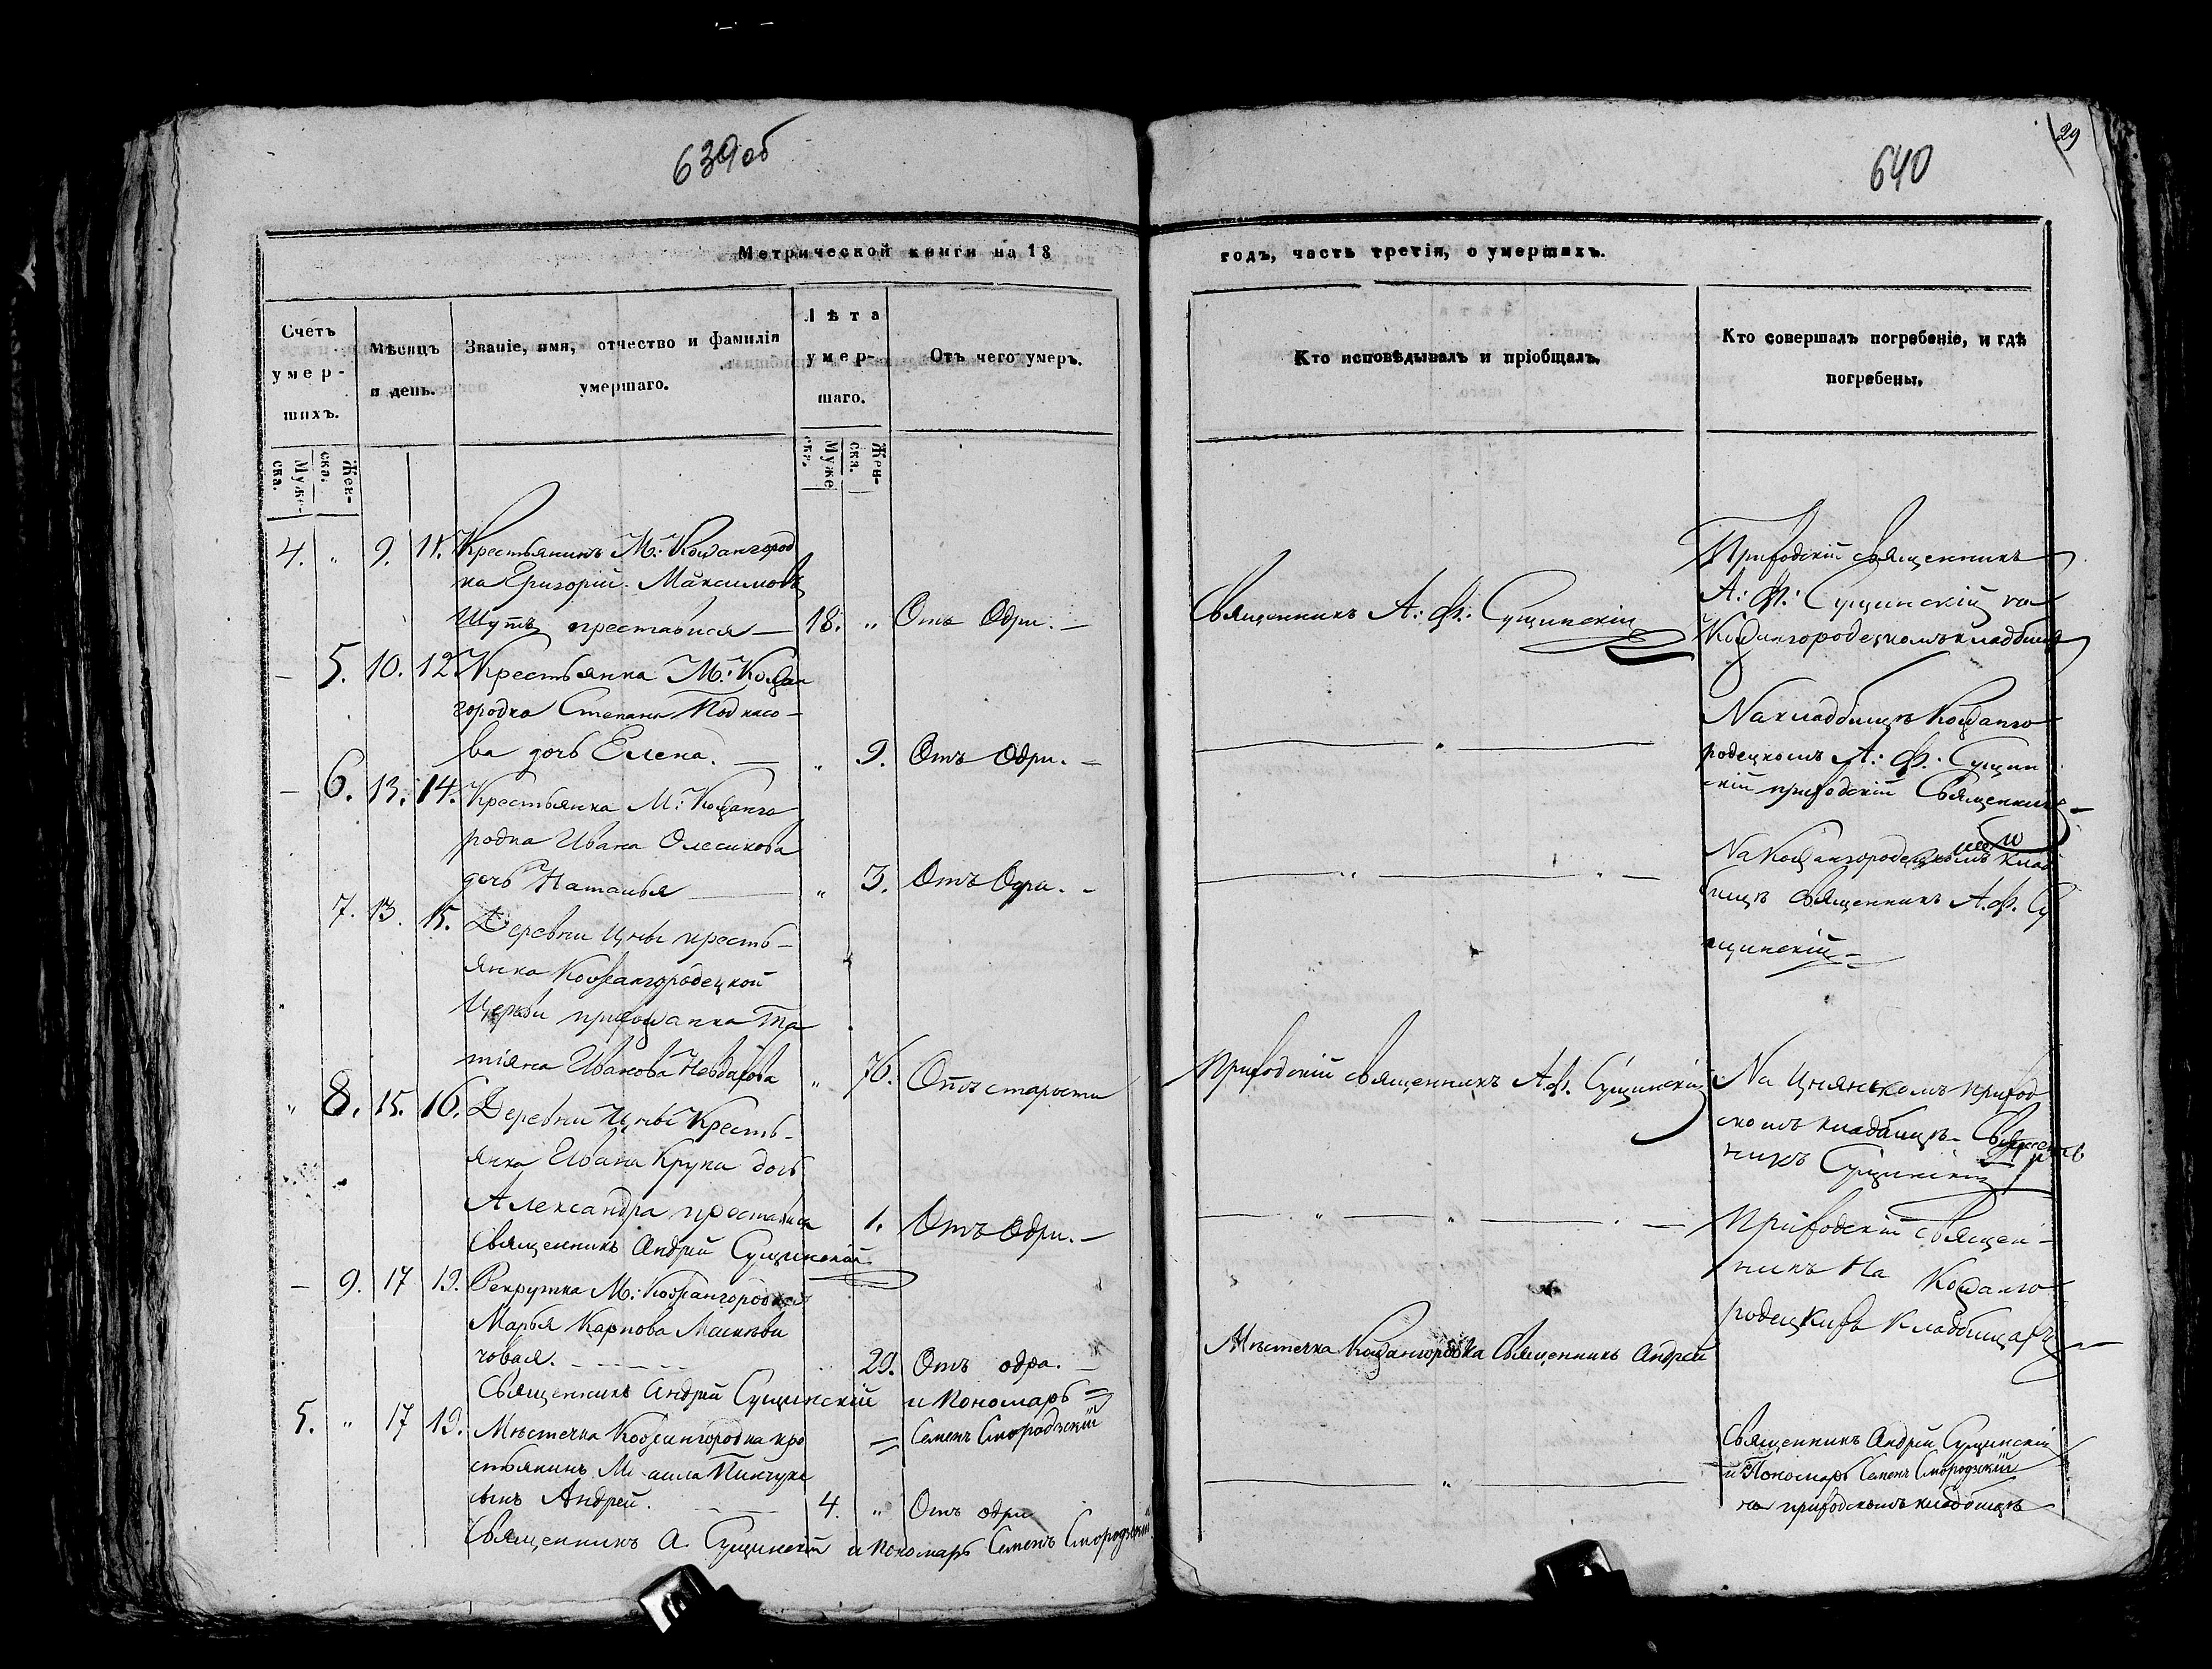 639 об
29
640
Метрической книги на 18
годъ, часть третія, о умершихъ.
Счетъ умер-шихъ.
Мѣсяцъ и день.
Званіе, имя, отчество и фамилія умершаго.
Лѣта умер-шаго.
Отъ чего умеръ.
Кто исповѣдывалъ и пріобщалъ.
Кто совершалъ погребеніе, и гдѣ погребены.
Муже-ска.
Жен-ска.
Муже ска.
Жен-ска.
4. " 9. 11. Крестьянинъ М: Кожангород
ка Григорій Максимовъ
Шутъ преставися — 18. " Отъ Одри. —
Священникъ А: Ф: Сущинскій
Приходскій священникъ
А: Ф: Сущинскій на
Кожангородецкомъ кладбище
— 5. 10. 12 Крестьянка М: Кожан
городка Степана Подкасо-
ва дочь Елена. — " 9. Отъ Одри. —
— " —
На кладбищѣ Кожанго
родецкомъ А: Ф: Сущин
скій приходскій Священникъ —
— 6. 13. 14. Крестьянка М: Кожанго
родка Ивана Олесикова
дочь Наталья — " 3. Отъ Одри. —
— " — " —
На Кожангородецкомъ клад
бищѣ Священникъ А. Ф. Су
щинскій —
7. 13. 15. Деревни Цны кресть-
янка Кожангородецкой
Церкви прихожанка Та
тіяна Иванова Невдахова " 76. Отъ старости
Приходскій священникъ А. Ф. Сущинскій
На Цнянскомъ приход
скомъ кладбищѣ — Священ
никъ Сущинскій
" 8. 15. 16. Деревни Цны Кресть-
янка Ивана Крука дочь
Александра преставися 1. Отъ Одри. —
Священникъ Андрей Сущинскій
— " — " —
Приходскій Священ-
никъ На Кожанго
родецкихъ Кладбищахъ —
— 9. 17 19. Рекрутка М: Кожангородка
Марья Карпова Маскеви
човая. — 29. Отъ одра. —
Священникъ Андрей Сущинскій и Пономарь =
= Семенъ Смородскій
Мѣстечка Кожангородка Священникъ Андрей
5. " 17 19. Мѣстечка Кожангородка кре
стьянинъ Михаила Пинчука
сынъ Андрей. — 4. " Отъ одри
Священникъ А. Сущинскій и Пономарь Семенъ Смородскій
— " —
Священникъ Андрей Сущинскій
и Пономарь Семенъ Смородскій
на приходскомъ кладбищѣ